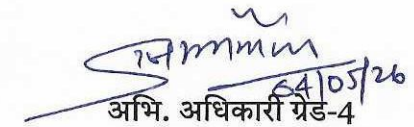 04/05/26
अभि. अधिकारी ग्रेड-4